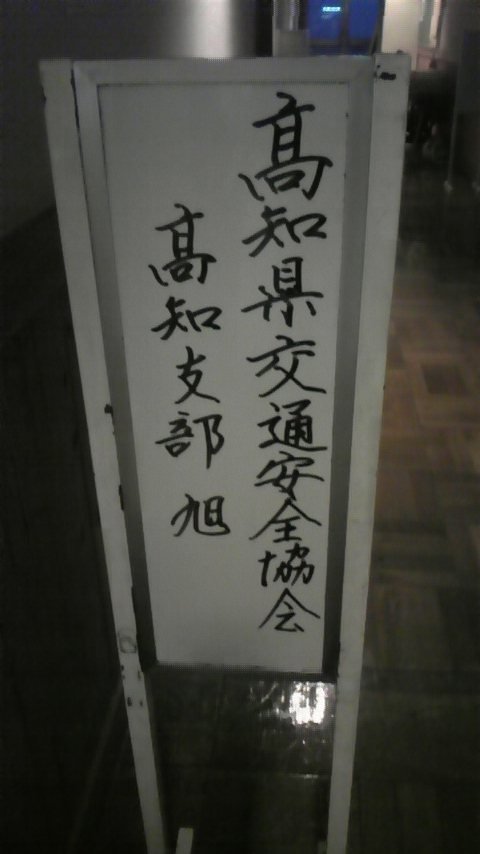 髙知県交通安全協会
髙知支部 旭